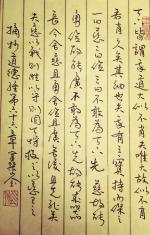 天下皆謂我道大似不肖夫唯大故似不肖
若肖久矣其細也夫我有三寶持而保之
一曰慈二曰儉三曰不敢為天下先慈故能
勇儉故能廣不敢為天下先故能成器
長今舍慈且勇舍儉且廣舍後且先死矣
夫慈以戰則勝以守則固天將救之以慈衛之
摘抄道德經第六十七章